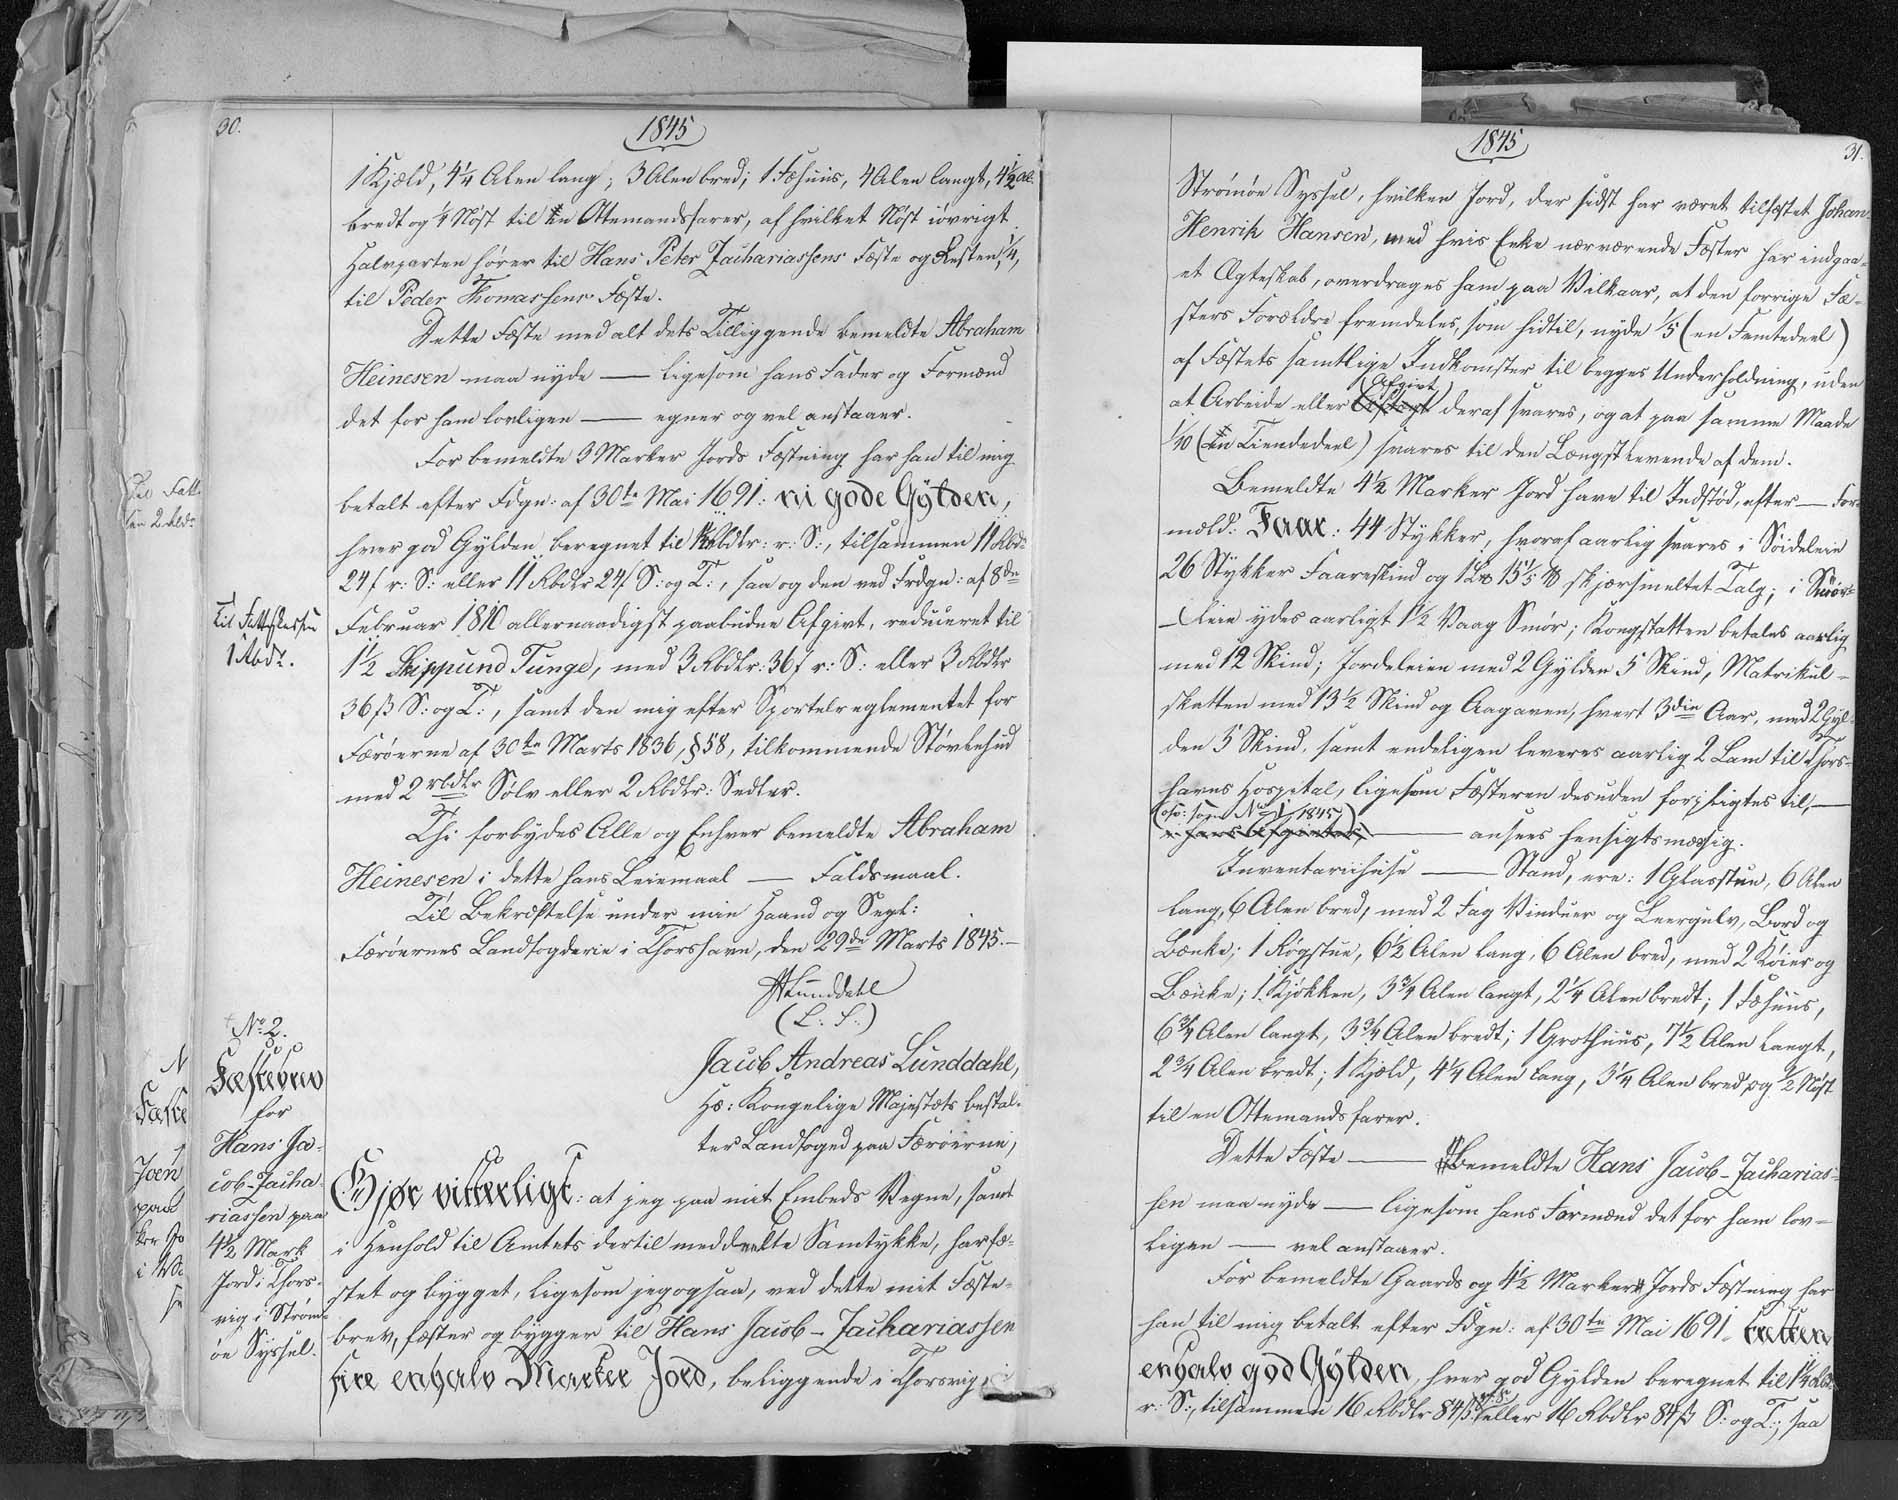 30.
1845
1 Kjæld, 4¼ Alen lang; 3 Alen bred; 1 Fæhuus, 4 Alen langt, 4½ Al.
bredt og ¼ Nøst til en Ottemandsfarer, af hvilket Nøst iøvrigt
Halvparten hører til Hans Peter Zachariassens Fæste og Resten, ¼,
til Peder Thomassens Fæste.
Dette Fæste med alt dets Tilliggende bemeldte Abraham
Heinesen maa nyde — ligesom hans Fader og Formænd
det for ham lovligen — egner og vel anstaaer.
For bemeldte 3 Marker Jords Fæstning har han til mig
betalt efter Fdgn: af 30te Mai 1691: ni gode Gylden,
hver god Gylden beregnet til 1¼ Rbdlr: r: S:, tilsammen 11 Rbdr
24 ß r: S: eller 11 Rbdlr 24 ß S: og T:, saa og den ved Frdgn: af 8de
Februar 1810 allernaadigst paabudne Afgivt, reduceret til
1½ Skippund Tunge, med 3 Rbdlr: 36 ß r: S: eller 3 Rbdlr
36 ß S: og T:, samt den mig efter Sportelreglementet for
Færøerne af 30te Marts 1836, § 58, tilkommende Støvlehud
med 2 rbdlr Sølv eller 2 Rbdlr: Sedler.
Thi forbydes Alle og Enhver bemeldte Abraham
Heinesen i dette hans Leiemaal — Faldsmaal.
Til Bekræftelse under min Haand og Segl:
Færøernes Landfogderie i Thorshavn, den 29de Marts 1845.—
Lunddahl
(L: S:)
Jacob Andreas Lunddahl,
Hs: Kongelige Majestæts bestal-
ter Landfoged paa Færøerne,
Gjør vitterligt: at jeg paa mit Embeds Vegne, samt
i Henhold til Amtets dertil meddeelte Samtykke, har fæ-
stet og bygget, ligesom jeg ogsaa, ved dette mit Fæste-
brev, fæster og bygger til Hans Jacob-Zachariassen
fire enhalv Marker Jord, beliggende i Thorsvig,
Til Fattigkassen
1 Rbdr.
No 2.
Fæstebrev
for
Hans Ja-
cob-Zacha-
riassen paa
4½ Mark
Jord i Thors-
vig i Strøm-
øe Syssel.
31.
1845
Strømøe Syssel, hvilken Jord, der sidst har været tilfæstet Johan
Henrik Hansen, med hvis Enke nærværende Fæster har indgaa-
et Ægteskab, overdrages ham paa Vilkaar, at den forrige Fæ-
sters Forældre fremdeles, som hidtil, nyde 1/5 (en Femtedeel)
af Fæstets samtlige Indkomster til begges Underholdning, uden
at Arbeide eller Afgivt deraf svares, og at paa samme Maade
1/10 (en Tiendedeel) svares til den Længstlevende af dem.
Bemeldte 4½ Marker Jord have til Indstød, efter — For-
mæld: Faar: 44 Stykker, hvoraf aarlig svares i Søideleie
26 Stykker Faareskind og 1 L℔ 15 1/5 ℔ skjærsmeltet Talg; i Smør-
Leie ydes aarligt 1½ Vaag Smør; Kongstatten betales aarlig
med 12 Skind; Jordeleien med 2 Gylden 5 Skind, Matrikul-
skatten med 13½ Skind og Aagaven, hvert 3die Aar, med 2 Gyl-
den 5 Skind, samt endeligen leveres aarlig 2 Lam til Thors-
havns Hospital, ligesom Fæsteren desuden forpligtes til, —
(osv: som No 1/1845) — ansees hensigtsmæssig.
Inventariihuse — Stand, ere: 1 Glasstue, 6 Alen
lang, 6 Alen bred, med 2 Fag Vinduer og Leergulv, Bord og
Bænke; 1 Røgstue, 6½ Alen lang, 6 Alen bred, med 2 Køier og
Bænke; 1 Kjøkken, 3¾ Alen langt, 2¼ Alen bredt; 1 Fæhuus,
6¾ Alen langt, 3¾ Alen bredt; 1 Grothuus, 7½ Alen langt,
2¾ Alen bredt; 1 Kjæld, 4¼ Alen lang, 3¼ Alen bred og ½ Nøst
til en Ottemandsfarer.
Dette Fæste — Bemeldte Hans Jacob-Zacharias-
sen maa nyde — ligesom hans Formænd det for ham lov-
ligen — vel anstaaer.
For bemeldte Gaards og 4½ Marker Jords Fæstning har
han til mig betalt efter Fdgn: af 30te Mai 1691 tretten
enhalv god Gylden, hver god Gylden beregnet til 1¼ Rbd
r: S:, tilsammen 16 Rbdlr 84 ß r: S: eller 16 Rbdlr 84 ß S: og T:, saa